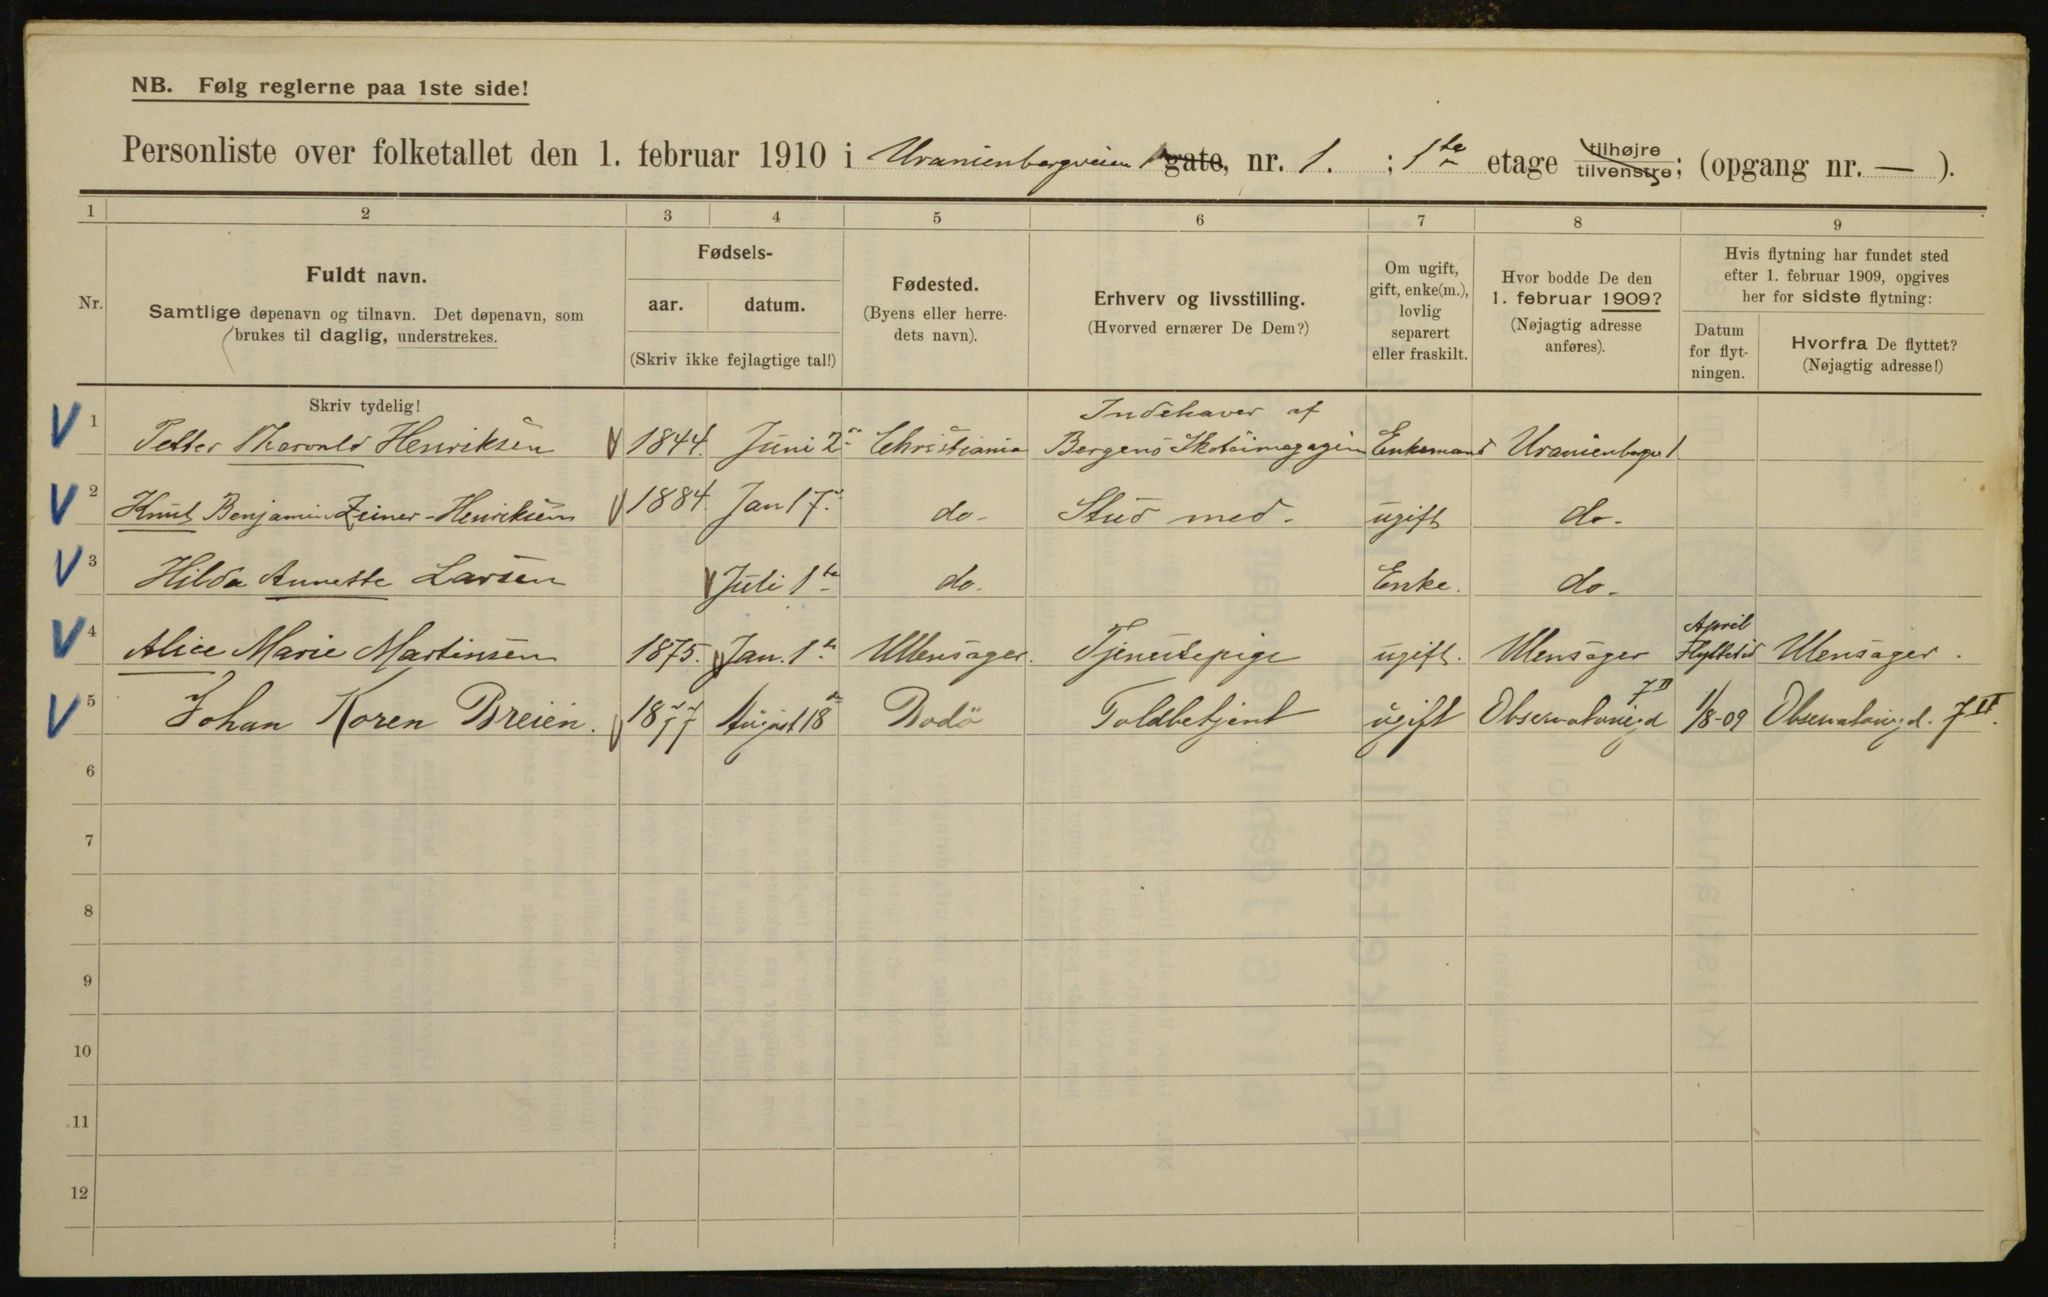 NB. Følg reglerne paa 1ste side!
Personliste over folketallet den 1. februar 1910 i Uranienborgveien 1 gate, nr. 1. ; 1te etage tilhøjre tilvenstre; (opgang nr. — ).
1 2 3 4 5 6 7 8 9
Nr.
Fuldt navn.
Samtlige døpenavn og tilnavn. Det døpenavn, som
brukes til daglig, understrekes.
Fødsels-
aar. datum.
(Skriv ikke fejlagtige tal!)
Fødested.
(Byens eller herre-
dets navn).
Erhverv og livsstilling.
(Hvorved ernærer De Dem?)
Om ugift,
gift, enke(m.),
lovlig
separert
eller fraskilt.
Hvor bodde De den
1. februar 1909?
(Nøjagtig adresse
anføres).
Hvis flytning har fundet sted
efter 1. februar 1909, opgives
her for sidste flytning:
Datum
for flyt-
ningen.
Hvorfra De flyttet?
(Nøjagtig adresse!)
Skriv tydelig!
Indehaver af
1 Petter Tharvald Henriksen 1844. Juni 2 Christiania Bergens Skotöimagagin Enkemand Uranienbgv 1
2 Knut Benjamin Zeiner-Henriksen 1884. Jan 17. do. Stud med. ugift do.
3 Hilda Annette Larsen Juli 1te do. Enke. do.
4 Alice Marie Martinsen 1875. Jan. 1te Ullensager. Tjenestepige ugift. Ulensager April Flyttetid Ulensager.
5 Johan Koren Breien. 1877 August 18de Bodö Toldbetjent ugift Observatoriegd 7II 1/8-09 Observatoriegd. 7II.
6
7
8
9
10
11
12